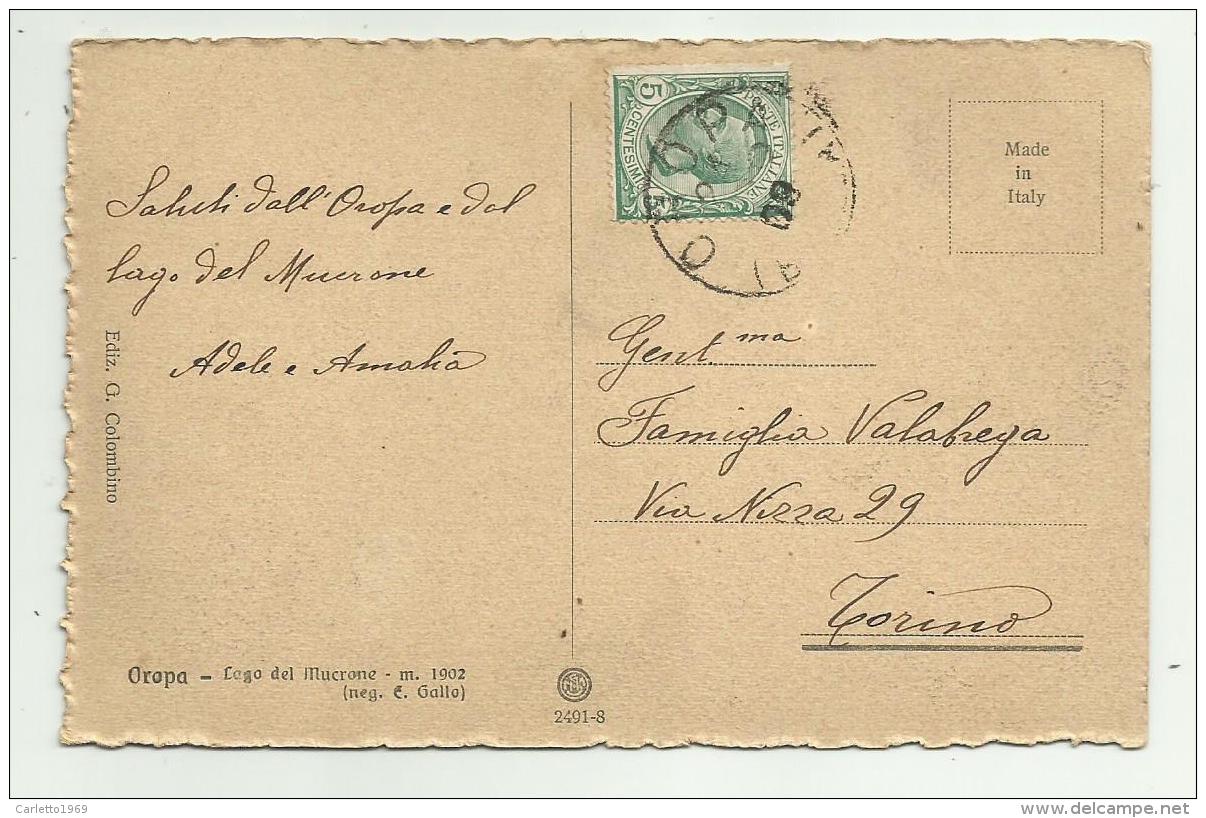 Saluti dall'Oropa e dal
lago del Mucrone
Adele e Amalia
Ediz. G. Colombino
Oropa – Lago del Mucrone - m. 1902
(neg. E. Gallo)
2491-8
5
CENTESIMI
POSTE ITALIANE
OROPA
Made
in
Italy
Gent.ma
Famiglia Valabrega
Via Nizza 29
Torino
Carletto1969
delcampe.net